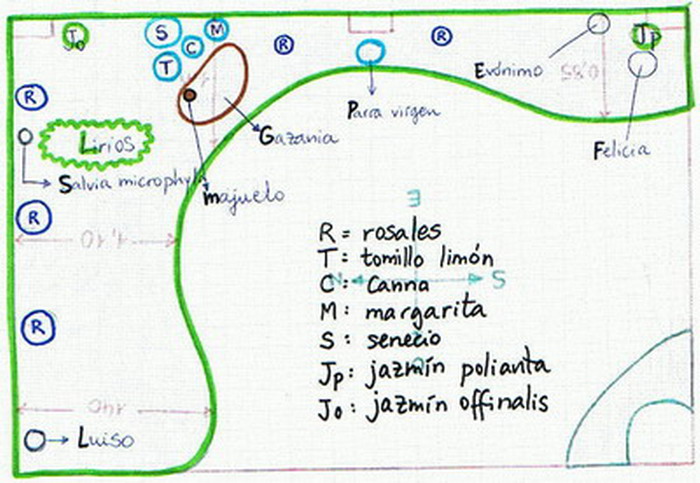 Jo
S
M
C
T
R
R
Jp
Evónimo
0,85
R
Parra virgen
Gazania
Felicia
Lirios
Salvia microphyla
majuelo
R
1,10
E
R = rosales
T: tomillo limón
N
S
C: Canna
M: margarita
S: senecio
R
Jp: jazmín polianta
Jo: jazmín offinalis
1,40
Luiso